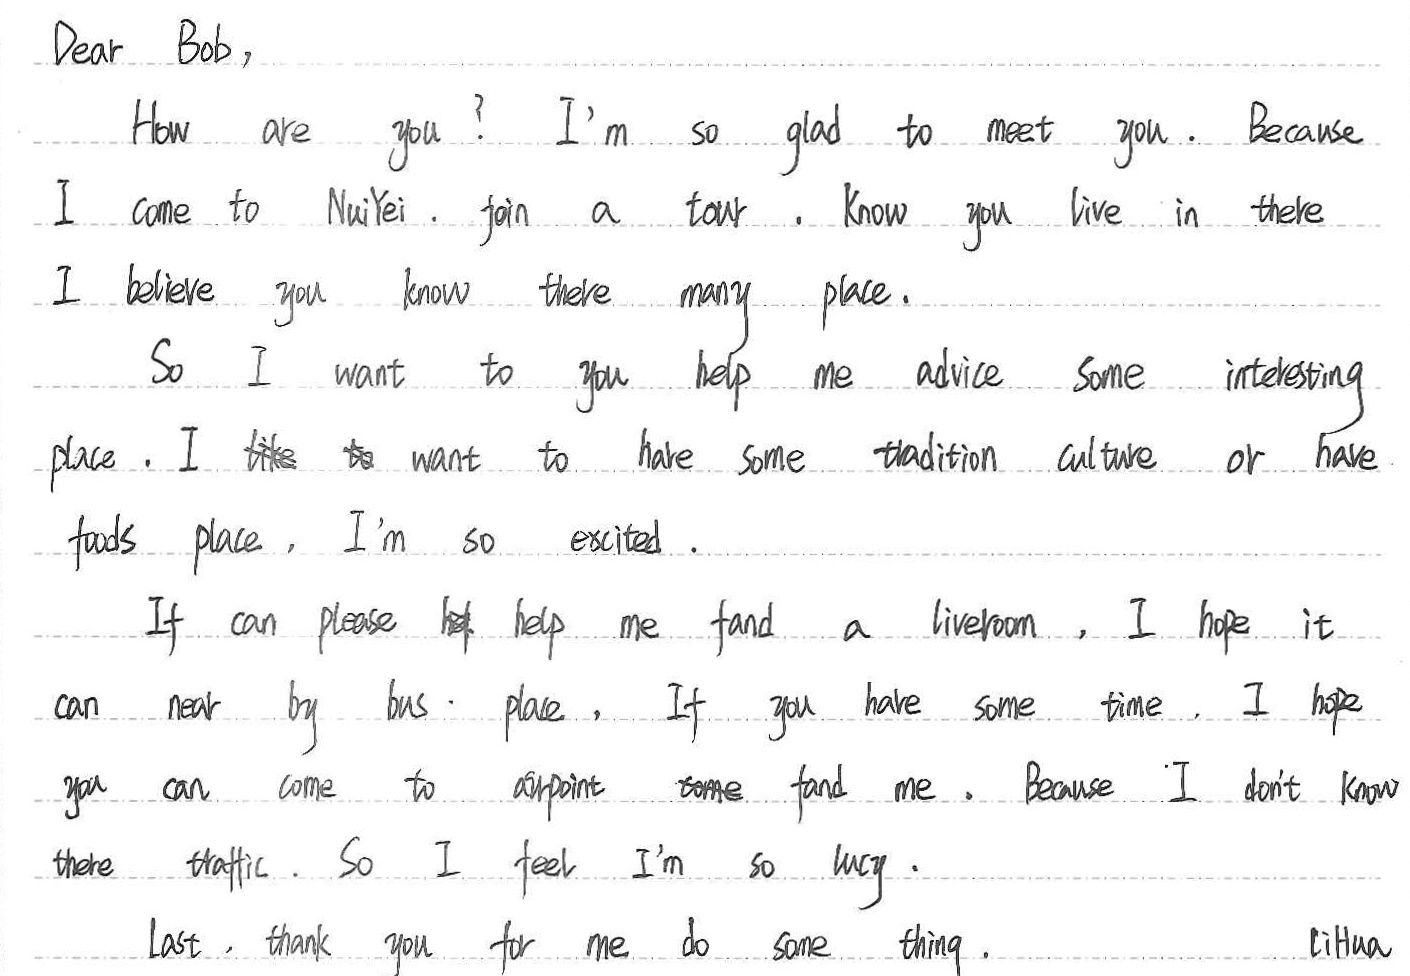 Dear Bob,
How are you? I'm so glad to meet you. Because
I come to NuiYei. join a tour. Know you live in there
I believe you know there many place.
So I want to you help me advice some interesting
place. I like to want to have some tradition culture or have
foods place, I'm so excited.
If can please help me fand a liveroom, I hope it
can near by bus. place, If you have some time, I hope
you can come to airpoint fand me. Because I don't know
there traffic. So I feel I'm so lucy.
Last, thank you for me do some thing. LiHua